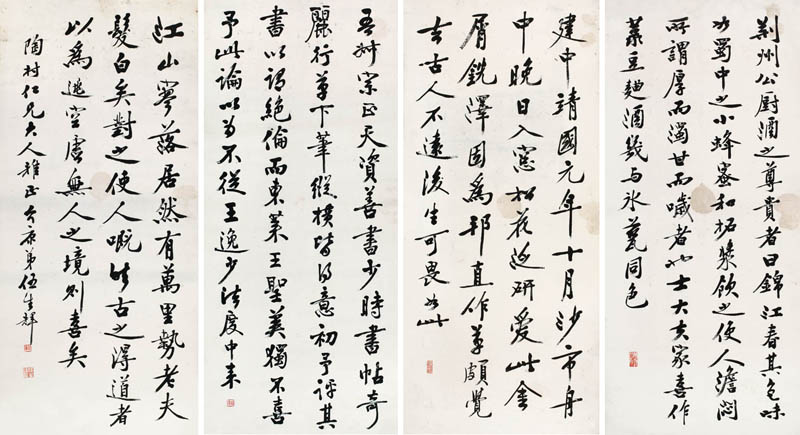 荆州公厨酒之尊貴者曰錦江春其色味
如蜀中之小蜂蜜和柘漿飲之使人澹悶
所謂厚而濁甘而噦者也士大夫家喜作
菉豆麯酒幾与冰甆同色
建中靖國元年十月沙市舟
中晚日入窓松花泛研愛此金
屑銑澤因爲邦直作草頗覺
去古人不遠後生可畏如此
吾叔宗正天資善書少時書帖奇
麗行草下筆縱横皆得意初予評其
書以謂絶倫而東萊王聖美獨不喜
予此論以为不從王逸少法度中来
江山寥落居然有萬里勢老夫
髮白矣對之使人慨然古之得道者
以為逃空虚無人之境则喜矣
陶村仁兄大人雅正介康弟伍生輝